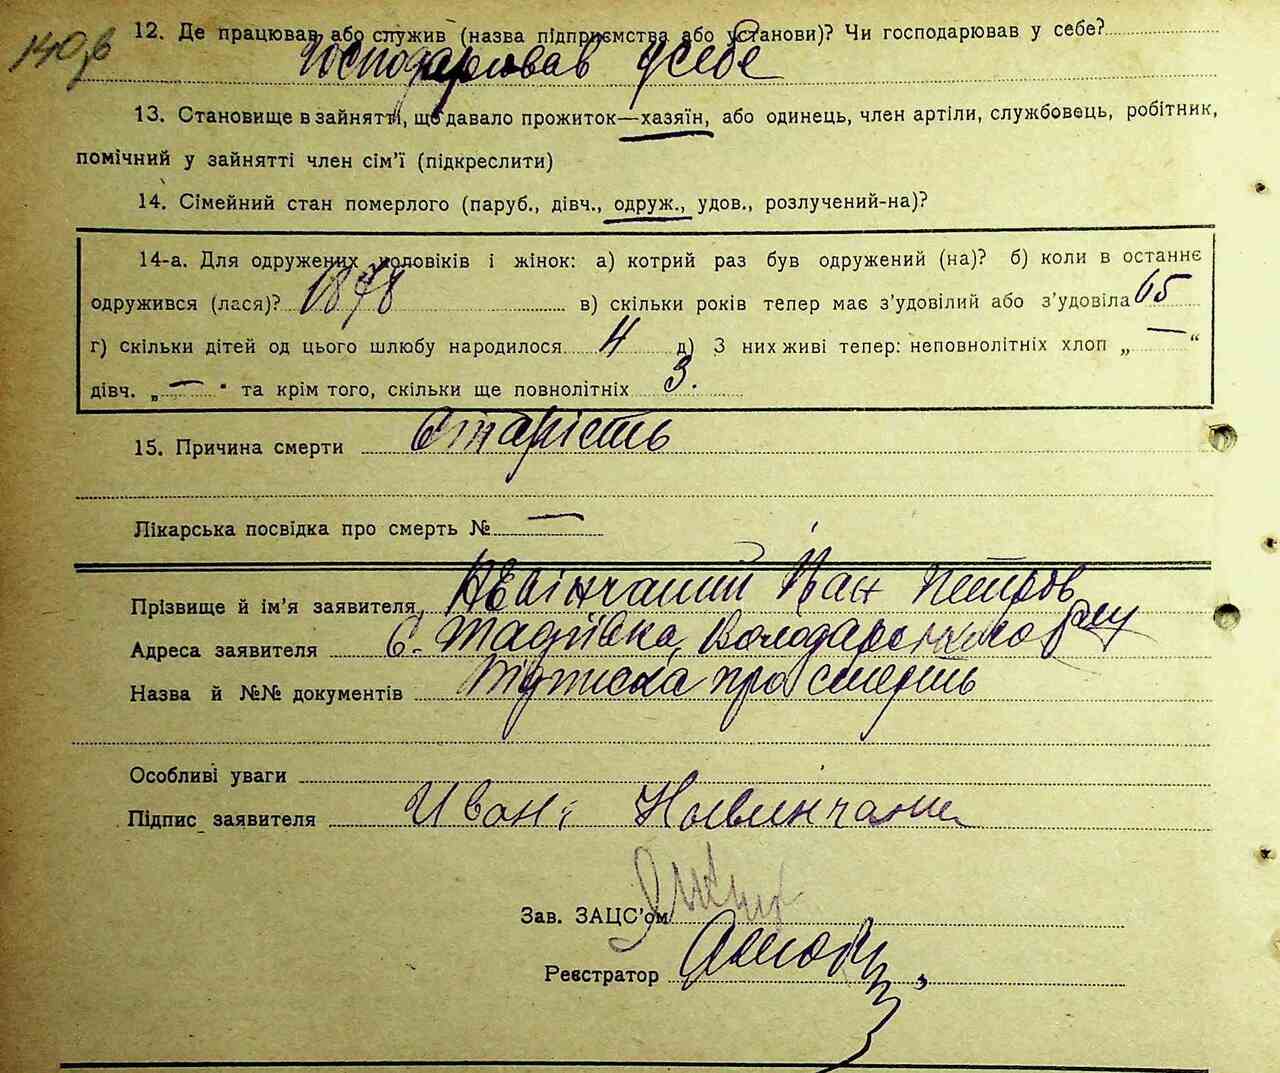 140зв
12. Де працював або служив (назва підприємства або установи)? Чи господарював у себе?
Господарював у себе
13. Становище в зайнятті, що давало прожиток—хазяїн, або одинець, член артіли, службовець, робітник,
помічний у зайнятті член сім’ї (підкреслити)
14. Сімейний стан померлого (паруб., дівч., одруж., удов., розлучений-на)?
14-а. Для одружених чоловіків і жінок: а) котрий раз був одружений (на)? б) коли в останнє
одружився (лася)? 1878 в) скільки років тепер має з’удовілий або з’удовіла 65
г) скільки дітей од цього шлюбу народилося 4 д) З них живі тепер: неповнолітніх хлоп „ — “
дівч. „ — “ та крім того, скільки ще повнолітніх 3.
15. Причина смерти Старість
Лікарська посвідка про смерть № —
Прізвище й ім’я заявителя Невінчаний Іван Петров
Адреса заявителя С. Тадіївка, Володарського р-ну
Назва й №№ документів Підписка про смерть
Особливі уваги
Підпис заявителя Иван
Зав. ЗАЦС’ом
Реєстратор